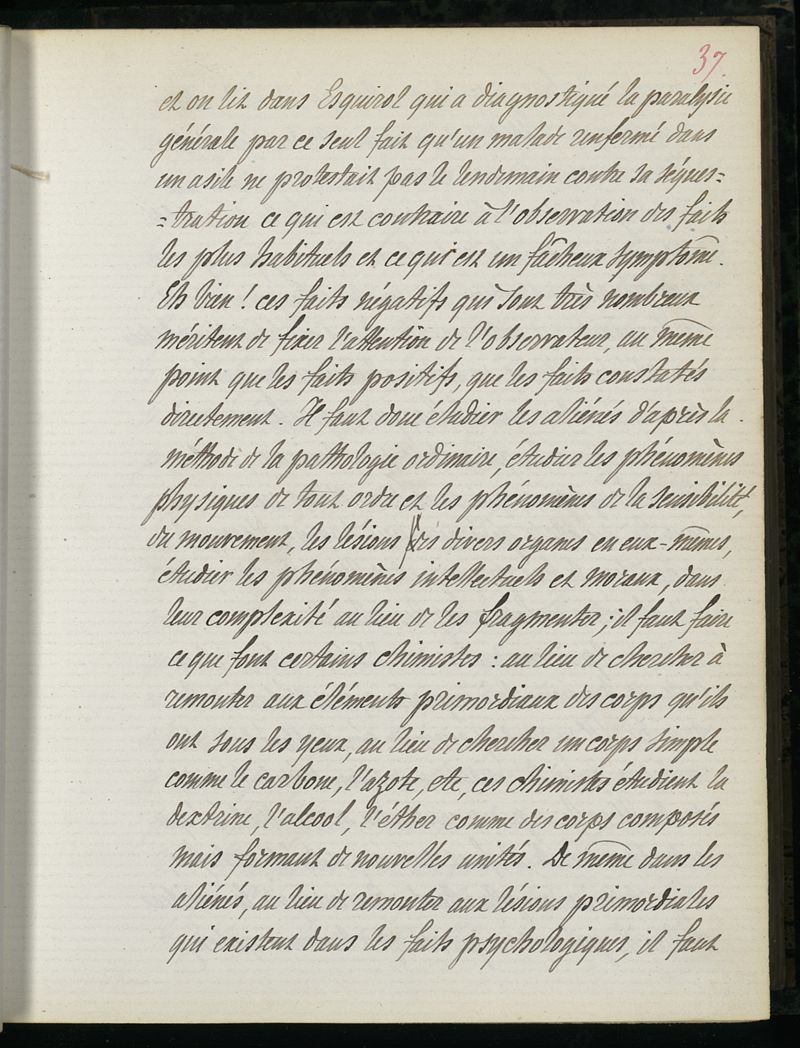 37
et on lit dans Esquirol qui a diagnostiqué la paralysie
générale par ce seul fait qu'un malade renfermé dans
un asile ne protestait pas le lendemain contre sa séques=
=tration ce qui est contraire à l'observation des faits
les plus habituels et ce qui est un fâcheux symptôme.
Eh bien ! ces faits négatifs qui sont très nombreux
méritent de fixer l'attention de l'observateur, au même
point que les faits positifs, que les faits constatés
directement. Il faut donc étudier les aliénés d'après la
méthode de la pathologie ordinaire, étudier les phénomènes
physiques de tout ordre et les phénomènes de la sensibilité,
du mouvement, les lésions des divers organes en eux-mêmes,
étudier les phénomènes intellectuels et moraux, dans
leur complexité au lieu de les fragmenter ; il faut faire
ce que font certains chimistes : au lieu de chercher à
remonter aux éléments primordiaux des corps qu'ils
ont sous les yeux, au lieu de chercher un corps simple
comme le carbone, l'azote, etc, ces chimistes étudient la
dextrine, l'alcool, l'éther comme des corps composés
mais formant de nouvelles unités. De même dans les
aliénés, au lieu de remonter aux lésions primordiales
qui existent dans les faits psychologiques, il faut